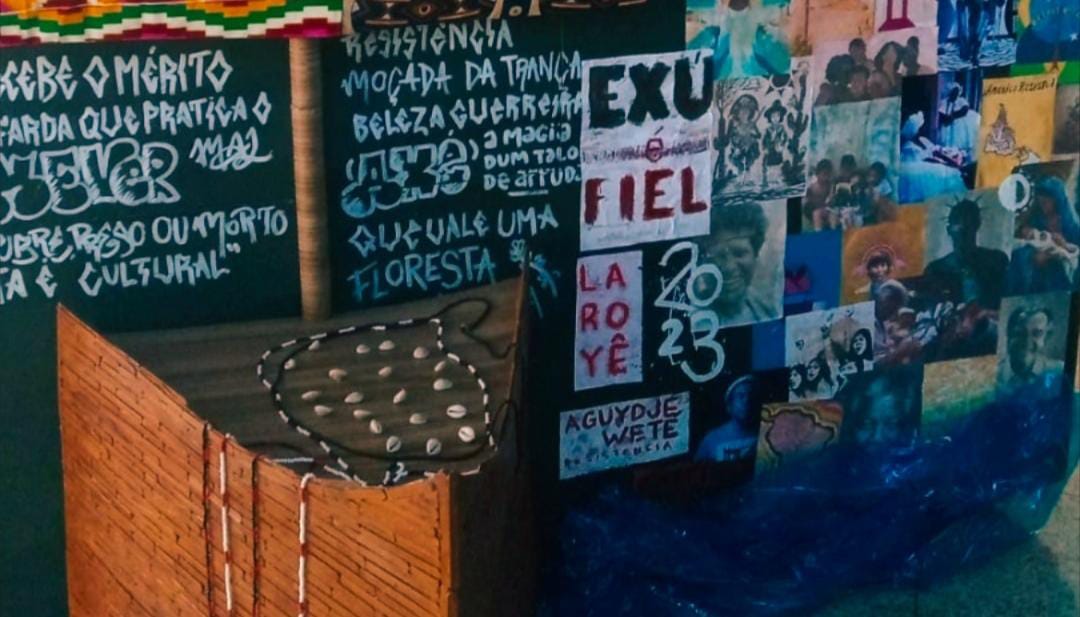 CEBE O MÉRITO
FARDA QUE PRATICA O
MAL
OBRE, PRESO OU MORTO
TA É CULTURAL"
RESISTÊNCIA
MOÇADA DA TRANÇA
BELEZA GUERREIRA
A MAGIA
DUM TALO
DE ARRUDA
QUE VALE UMA
FLORESTA
EXU
É
FIEL
LA
RO
YÊ
2023
AGUYDJE
WETE
RESISTENCIA